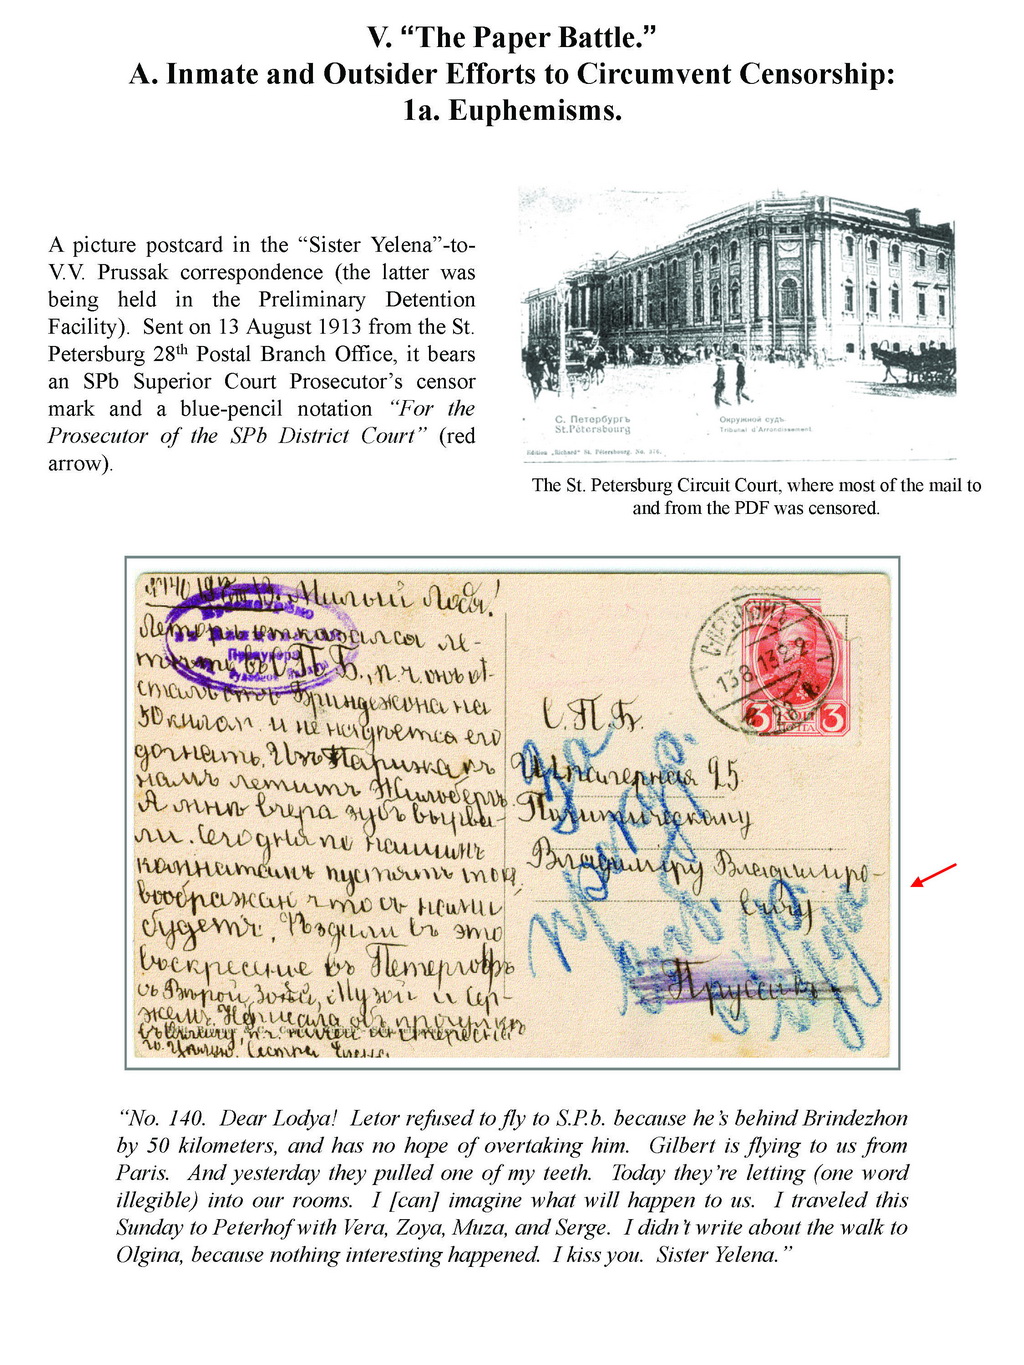 V. “The Paper Battle.”
A. Inmate and Outsider Efforts to Circumvent Censorship:
1a. Euphemisms.
A picture postcard in the “Sister Yelena”-to-
V.V. Prussak correspondence (the latter was
being held in the Preliminary Detention
Facility). Sent on 13 August 1913 from the St.
Petersburg 28th Postal Branch Office, it bears
an SPb Superior Court Prosecutor’s censor
mark and a blue-pencil notation “For the
Prosecutor of the SPb District Court” (red
arrow).
С. Петербургъ
St.Pétersbourg
Окружной судъ.
Tribunal d'Arrondissement
Edition „Richard“ St. Pétersbourg. No.
The St. Petersburg Circuit Court, where most of the mail to
and from the PDF was censored.
Милый Лодя!
Леторъ отказался ле-
тѣть въ С.П.Б.,
Бриндежона на
50 килом. и не надѣется его
догнать. Изъ Парижа къ
намъ летитъ Жильберъ.
А мнѣ вчера зубъ вырва-
ли. Сегодня по нашимъ
комнатамъ пустятъ
воображаю что съ нами
будетъ. Ѣздили въ это
воскресенье въ Петергофъ
съ Вѣрой, Зоей, Музой и Сер-
жемъ. Не писала о прогулкѣ
Сестра Елена.
Прокурора
С.ПЕТЕРБУРГЪ
13.8.13
3 3
ПОЧТА
С.П.Б.
Шпалерная 25.
Политическому
Владимиру Владимиро-
вичу
Пруссакъ
За
прокурора
“No. 140. Dear Lodya! Letor refused to fly to S.P.b. because he’s behind Brindezhon
by 50 kilometers, and has no hope of overtaking him. Gilbert is flying to us from
Paris. And yesterday they pulled one of my teeth. Today they’re letting (one word
illegible) into our rooms. I [can] imagine what will happen to us. I traveled this
Sunday to Peterhof with Vera, Zoya, Muza, and Serge. I didn’t write about the walk to
Olgina, because nothing interesting happened. I kiss you. Sister Yelena.”